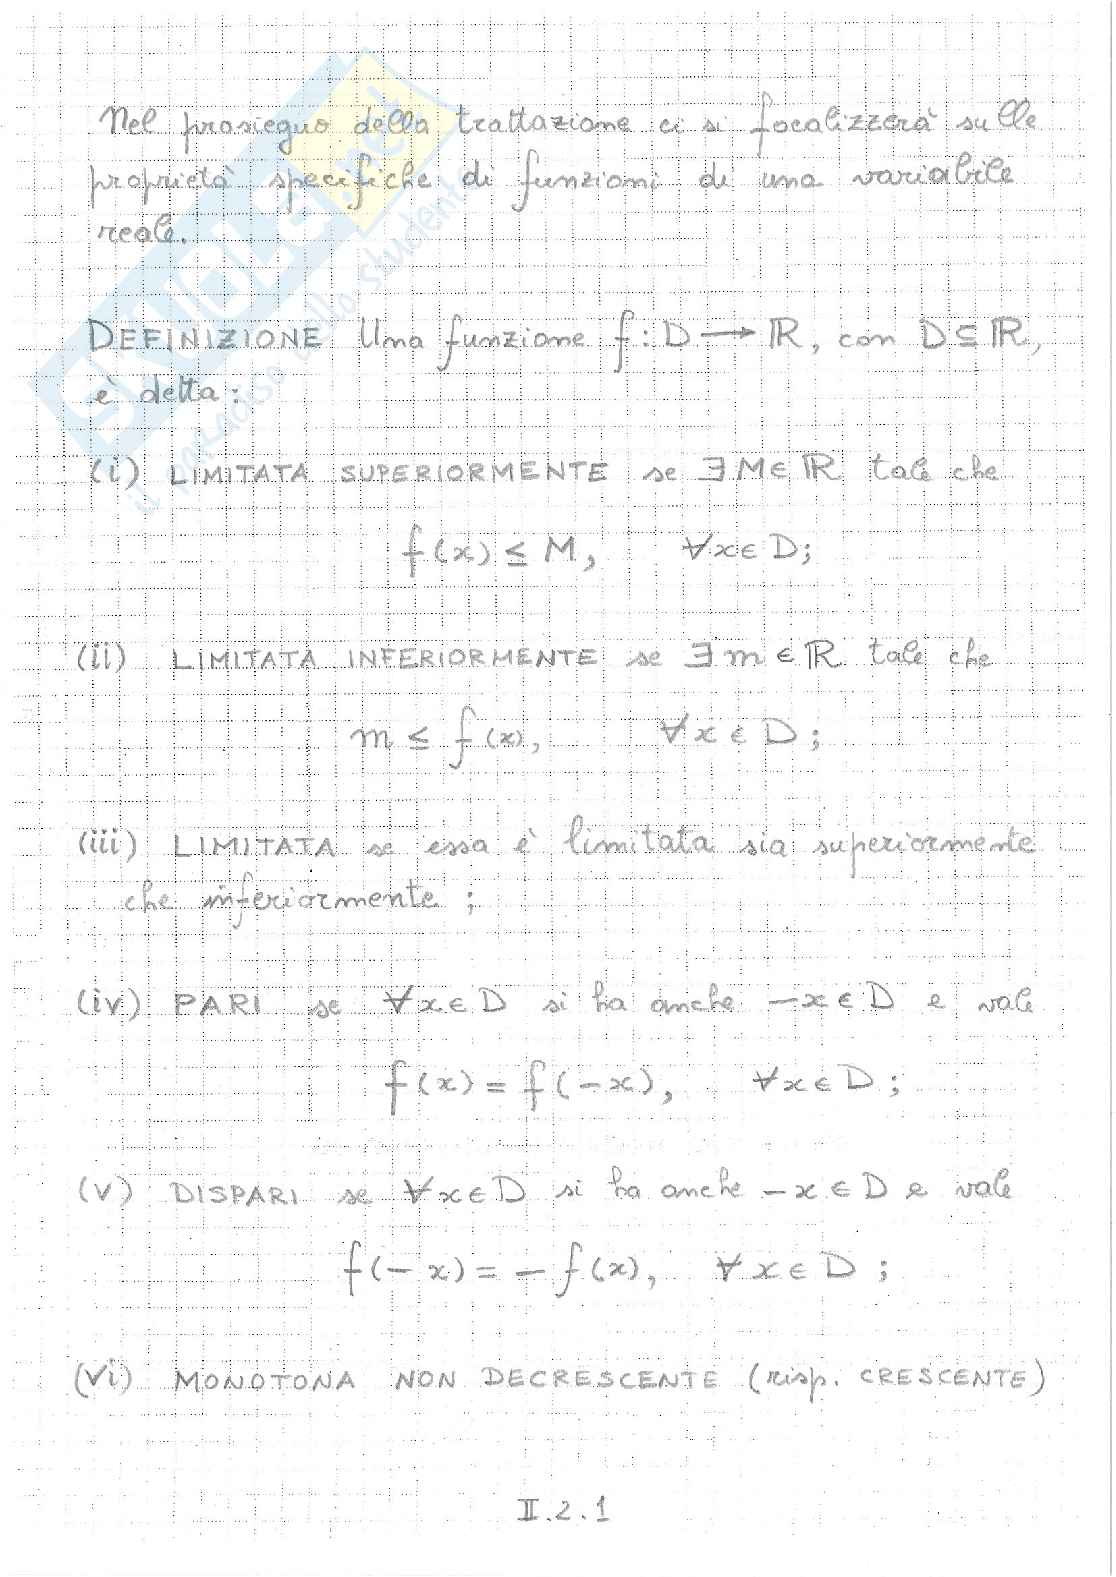 Nel prosieguo della trattazione ci si focalizzerà sulle
proprietà specifiche di funzioni di una variabile
reale.
DEFINIZIONE Una funzione f: D → ℝ, con D ⊆ ℝ,
è detta:
(i) LIMITATA SUPERIORMENTE se ∃ M ∈ ℝ tale che
f(x) ≤ M, ∀x ∈ D;
(ii) LIMITATA INFERIORMENTE se ∃ m ∈ ℝ tale che
m ≤ f(x), ∀x ∈ D;
(iii) LIMITATA se essa è limitata sia superiormente
che inferiormente;
(iv) PARI se ∀x ∈ D si ha anche −x ∈ D e vale
f(x) = f(−x), ∀x ∈ D;
(v) DISPARI se ∀x ∈ D si ha anche −x ∈ D e vale
f(−x) = −f(x), ∀x ∈ D;
(vi) MONOTONA NON DECRESCENTE (risp. CRESCENTE)
II.2.1
SKUOLA.net
il paradiso dello studente